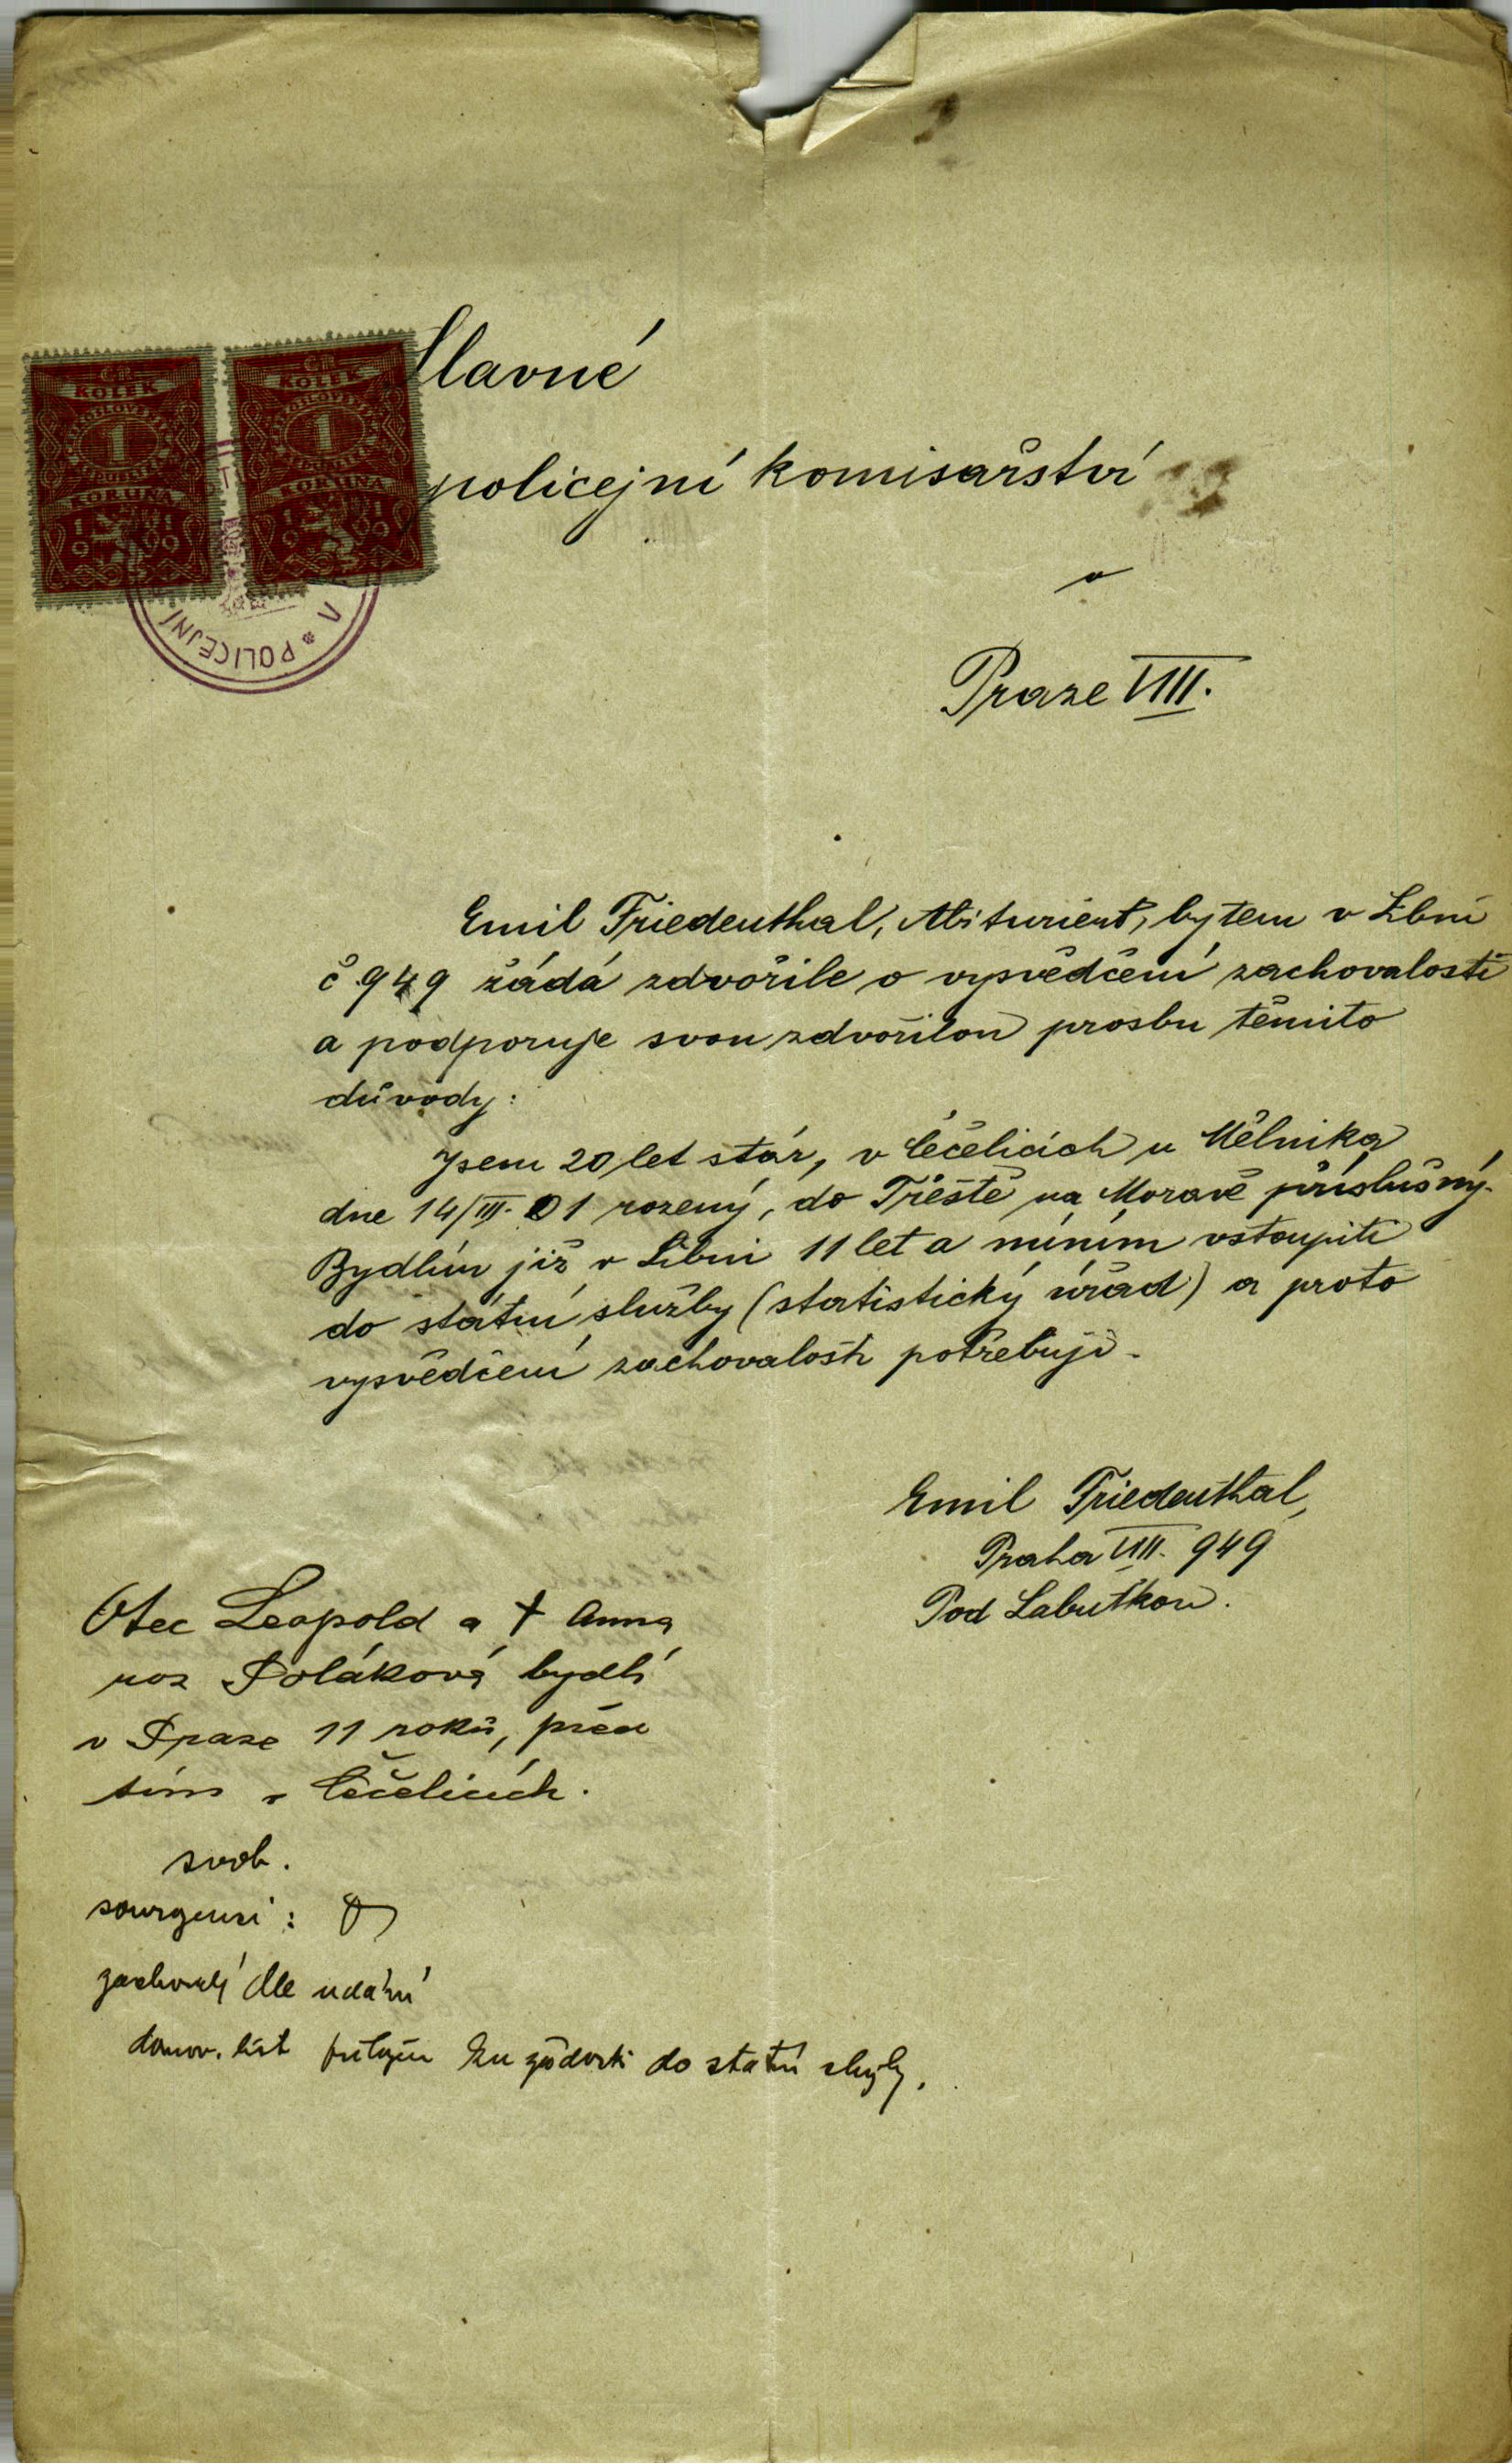 Slavné
policejní komisařství
v
Praze VIII.
ČR.
KOLEK
1
KORUNA
1919
ČR.
KOLEK
1
KORUNA
1919
V * POLICEJNÍ
Emil Friedenthal, Abiturient, bytem v Libni
č 949 žádá zdvořile o vysvědčení zachovalosti
a podporuje svou zdvořilou prosbu těmito
důvody:
Jsem 20 let stár, v Čečelicích u Mělnika
dne 14/III. 01 rozený, do Třeště na Moravě příslušný.
Bydlím již v Libni 11 let a míním vstoupiti
do státní služby (statistický úřad) a proto
vysvědčení zachovalosti potřebuji.
Emil Friedenthal,
Praha VIII. 949
Pod Labuťkou.
Otec Leopold a † Anna
roz Poláková bydlí
v Praze 11 roků, před
tím v Čečelicích.
svob.
sourozenci:
zachovalý dle udání
domov. list přiložen ku žádosti do státní služby.